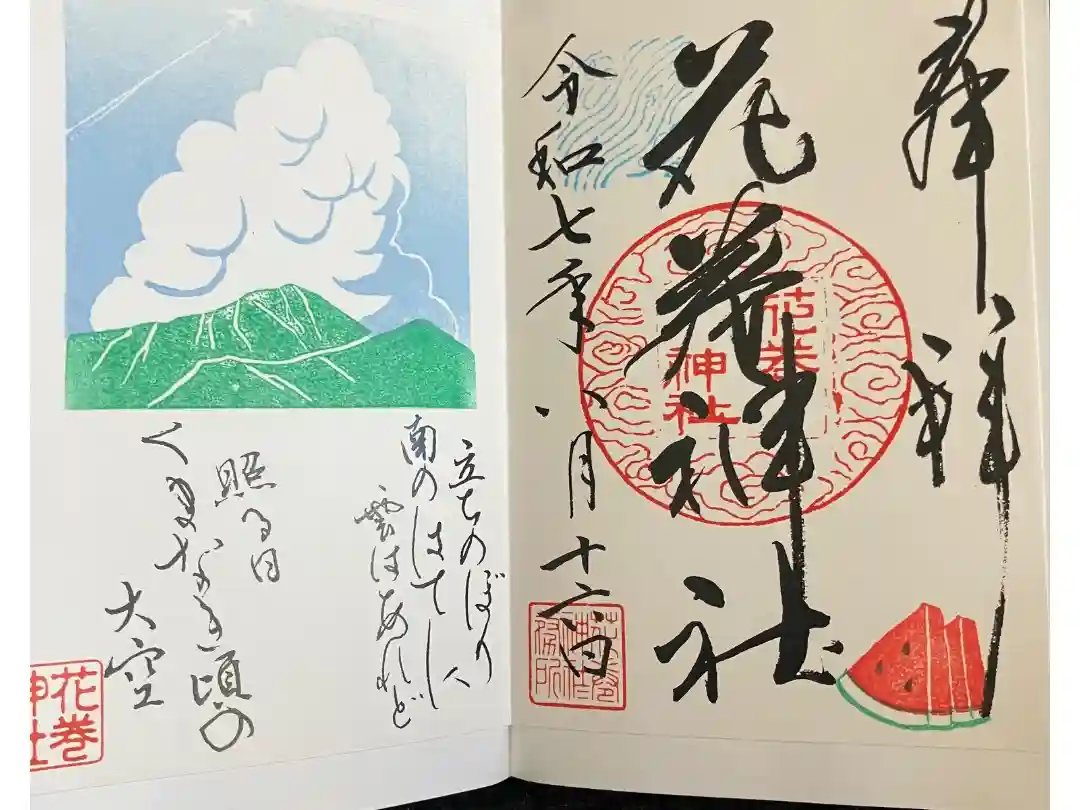 奉拝
花巻神社
令和七年八月十六日
花巻
神社
花巻
神社
務所
立ちのぼり
南のはてに
雲はあれど
照る日
くまなき頃の
大空
花巻
神社